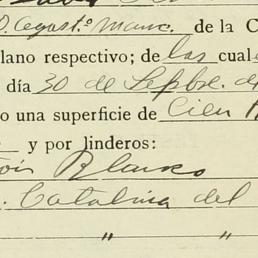 D. Agost.º Manr. de la C
lano respectivo; de las cual
día 30 de Sepbre. de
o una superficie de Cien
y por linderos:
Blanco
Catalina del
" "